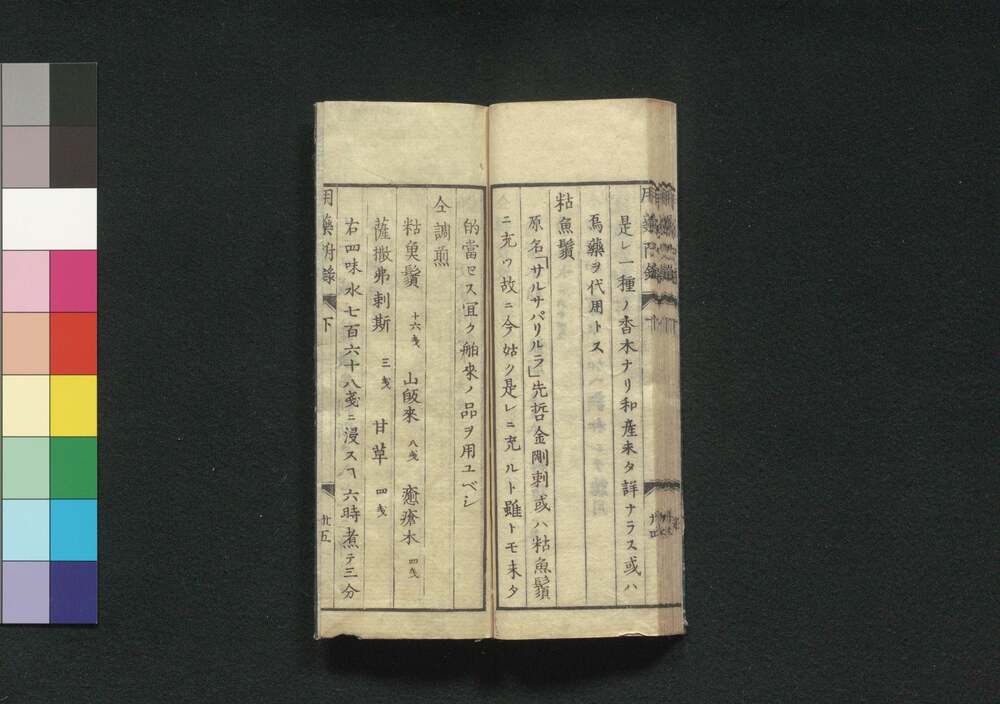 是レ一種ノ香木ナリ和産未タ詳ナラス或ハ
烏藥ヲ代用トス
粘魚鬚
原名「サルサパリルラ」先哲金剛刺或ハ粘魚鬚
ニ充ツ故ニ今姑ク是レニ充ルト雖トモ未タ
的當セス宜ク舶來ノ品ヲ用ユベシ
仝調煎
粘魚鬚 十六戔 山皈來 八戔 癒瘡木 四戔
薩撒弗剌斯 三戔 甘草 四戔
右四味水七百六十八戔ニ浸スヿ六時煮テ三分
用藥附録 下 廿五